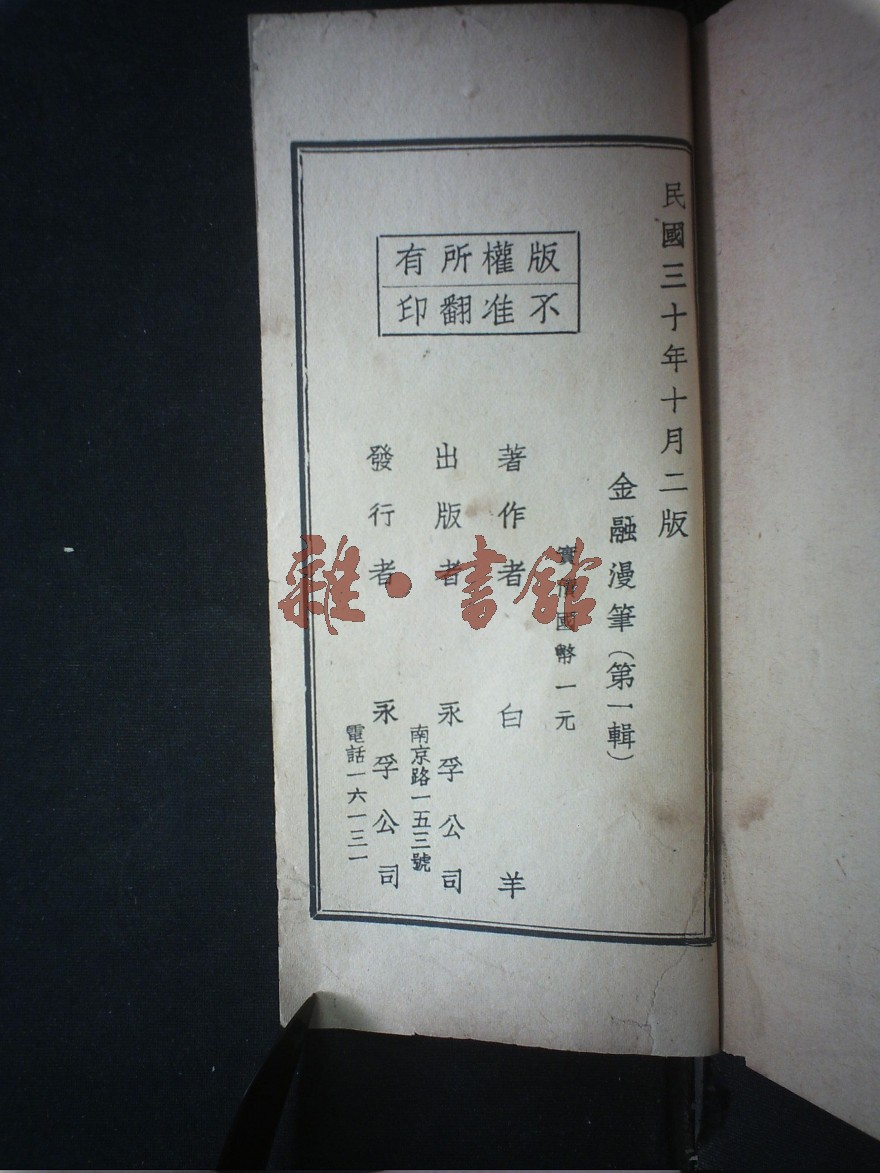 民國三十年十月二版
金融漫筆（第一輯）
實價國幣一元
版權所有
不准翻印
著作者 白羊
出版者 永孚公司
南京路一五三號
發行者 永孚公司
電話一六一三一
雜·書館